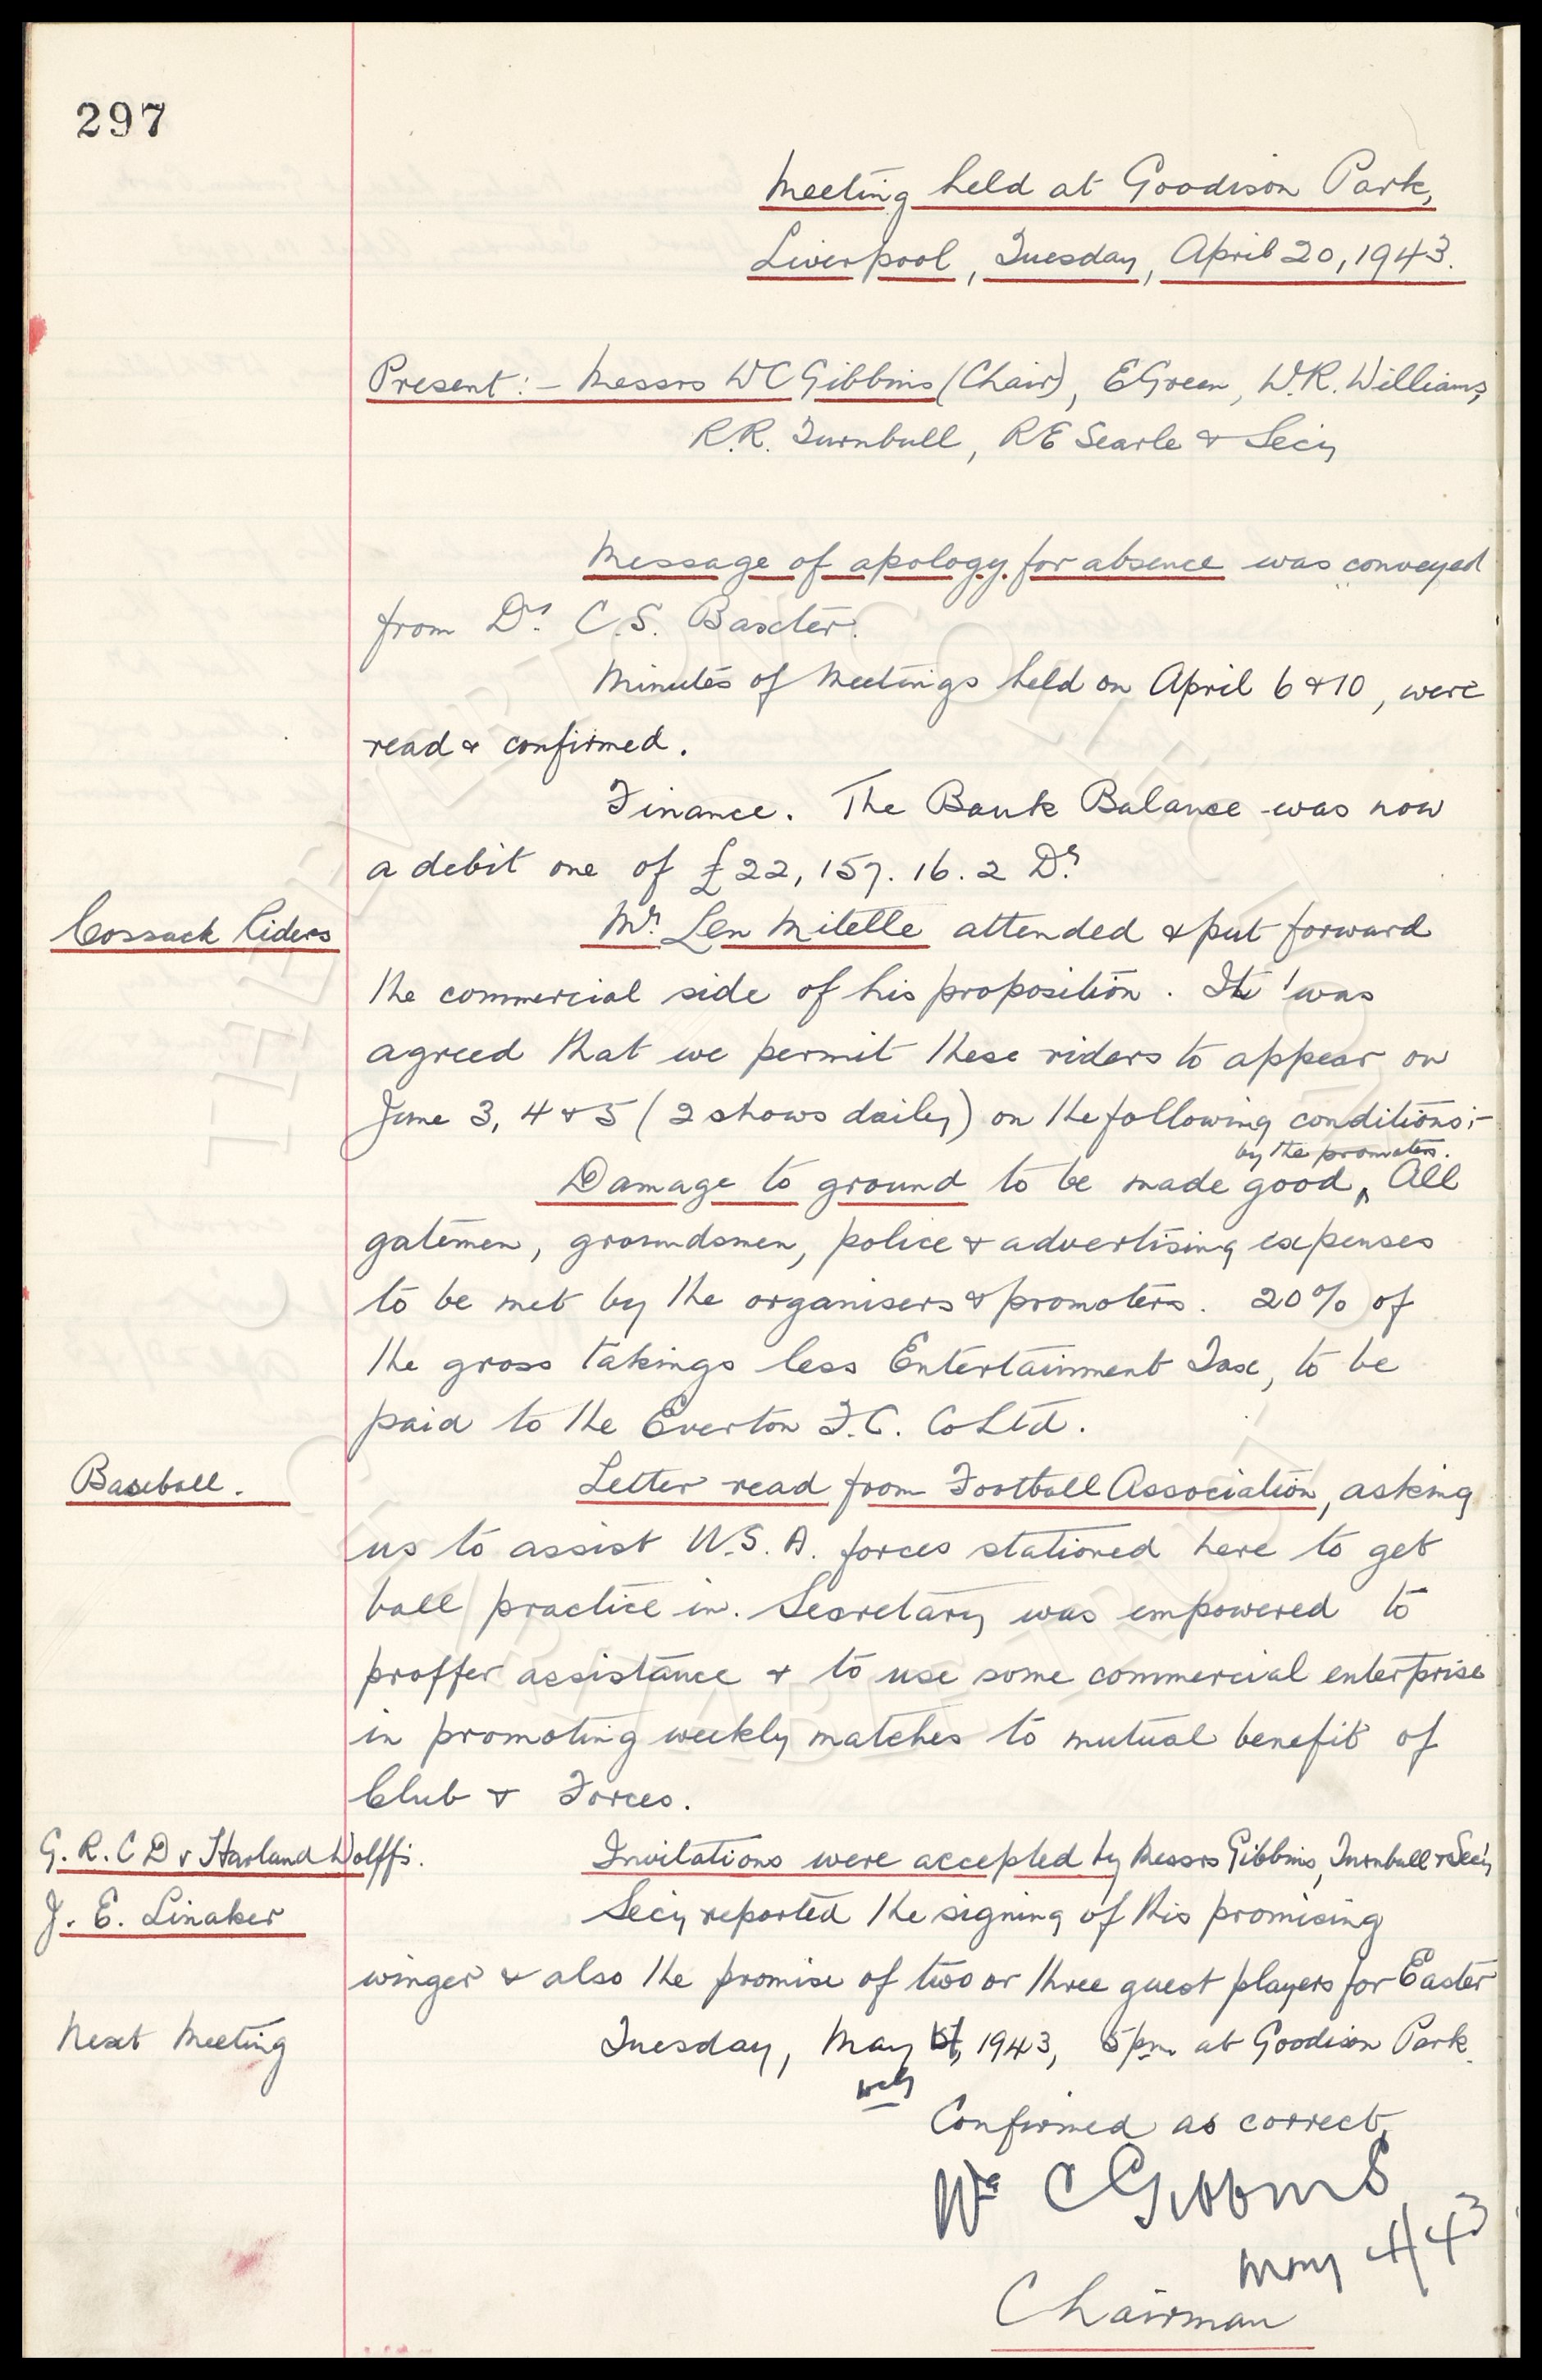 297
Meeting held at Goodison Park,
Liverpool, Tuesday, April 20, 1943.
Present:- Messrs W C Gibbins (Chair), E Green, W.R. Williams,
R.R. Turnbull, R E Searle & Secy
Message of apology for absence was conveyed
from Dr. C.S. Baxter.
Minutes of Meetings held on April 6 & 10, were
read & confirmed.
Finance. The Bank Balance was now
a debit one of £22,157.16.2 Dr.
Cossack Riders
Mr. Len Mitelle attended & put forward
the commercial side of his proposition. It was
agreed that we permit these riders to appear on
June 3, 4 & 5 (2 shows daily) on the following conditions:-
by the promoters.
Damage to ground to be made good, All
gatemen, groundsmen, police & advertising expenses
to be met by the organisers & promoters. 20% of
the gross takings less Entertainment Tax, to be
paid to the Everton F.C. Co Ltd.
Baseball.
Letter read from Football Association, asking
us to assist U.S.A. forces stationed here to get
ball practice in. Secretary was empowered to
proffer assistance & to use some commercial enterprise
in promoting weekly matches to mutual benefit of
Club & Forces.
G.R.C D v Harland Wolffs.
Invitations were accepted by Messrs Gibbins, Turnbull & Secy
J. E. Linaker
Secy reported the signing of this promising
winger & also the promise of two or three guest players for Easter
Next Meeting
Tuesday, May 1943, 5 pm at Goodison Park.
Confirmed as correct,
Wm C Gibbins
May 4/43
Chairman